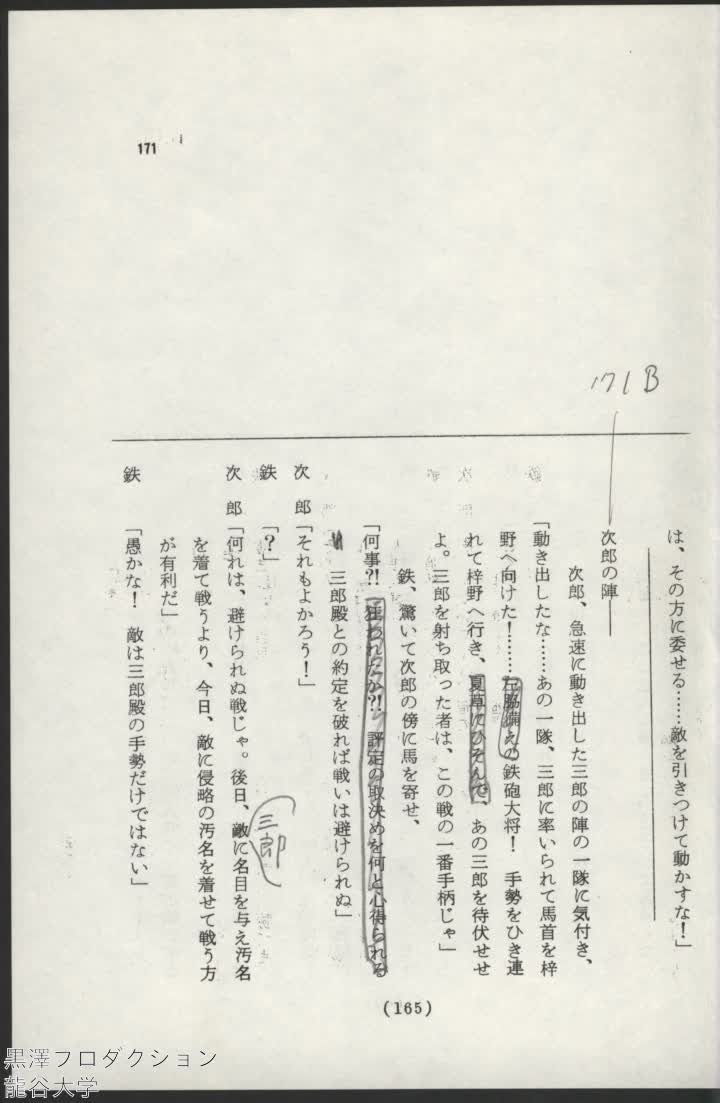 171
171B
は、その方に委せる……敵を引きつけて動かすな！」
次郎の陣――
次郎、急速に動き出した三郎の陣の一隊に気付き、
「動き出したな……あの一隊、三郎に率いられて馬首を梓
野へ向けた！……左脇備えの鉄砲大将！　手勢をひき連
れて梓野へ行き、夏草にひそんで、あの三郎を待伏せせ
よ。三郎を射ち取った者は、この戦の一番手柄じゃ」
鉄、驚いて次郎の傍に馬を寄せ、
「何事?!　狂われたか?!　評定の取決めを何と心得られる
三郎殿との約定を破れば戦いは避けられぬ」
次郎「それもよかろう！」
鉄「？」
次郎「何れは、避けられぬ戦じゃ。後日、敵に名目を与え汚名
三郎
を着て戦うより、今日、敵に侵略の汚名を着せて戦う方
が有利だ」
鉄「愚かな！　敵は三郎殿の手勢だけではない」
(165)
黒澤プロダクション
龍谷大学